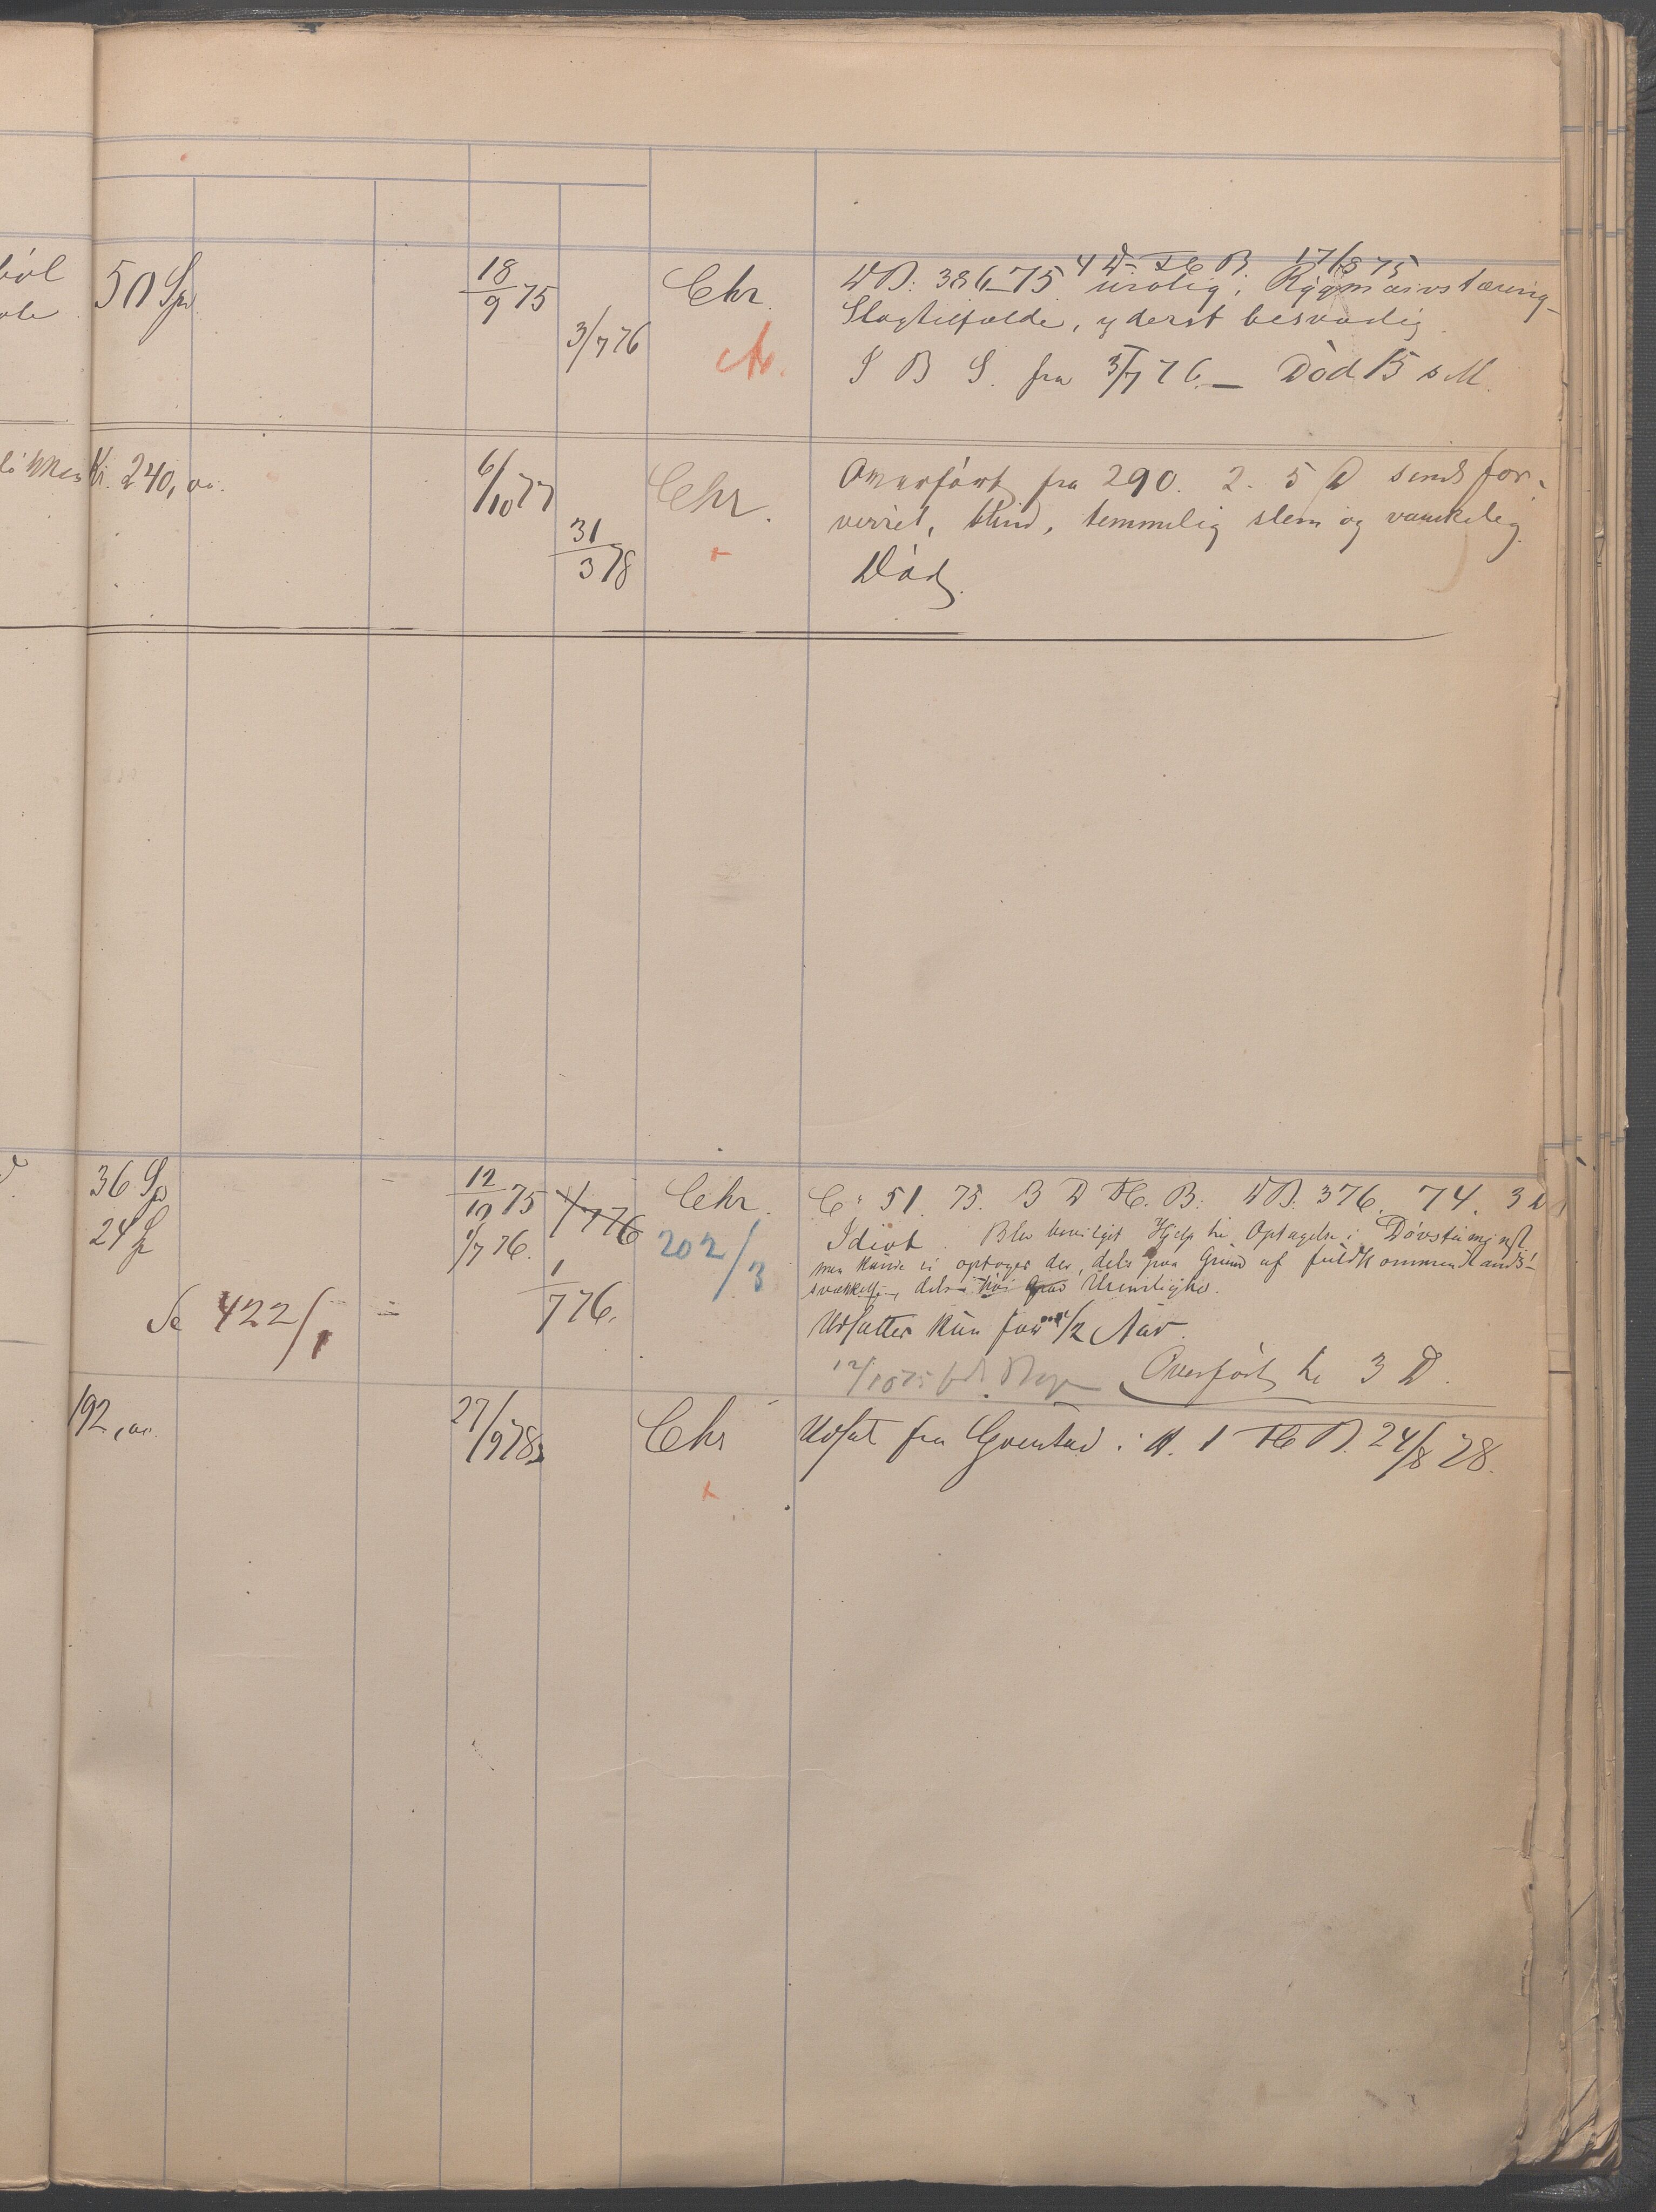 50 Sp
18/9 75
3/7 76
Chr.
WB: 386-75 urolig; Rygmarvstæring-
4 D. HB. 17/8 75
Slagtilfælde, yderst besværlig.
S B S. fra 3/7 76. — Död 15 s M.
Kr. 240,00.
6/10 77
31/3 78
Chr.
Overført fra 290. 2. 5 D sindsfor-
virret, blind, temmelig slem og vanskelig.
Död.
36 Sp
24 Sp
Se 422/1
12/10 75
1/7 76.
1/7 76
1/7 76.
Chr.
202/3
C: 51. 75. 3 D HB. WB. 376. 74. 3 D
Idiot. Blev bevilget Hjelp til Optagelse i Døvstume
men kunde ei optages der, dels paa Grund af fuldkommen Aands-
svækkelse, dels høi Grad Urenlighed.
Udsættes kun for 1/2 Aar.
12/10 75
Overført til 3 D.
192,00.
27/9 78
Chr
Udsat fra i A. 1 HB. 24/8 78.